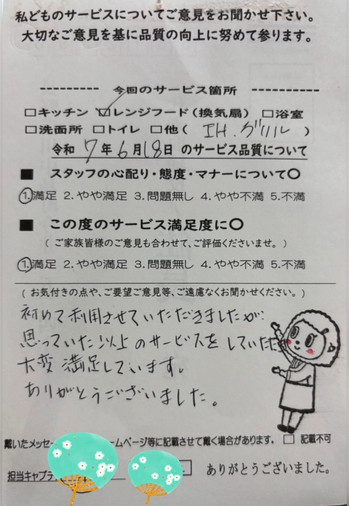 私どものサービスについてご意見をお聞かせ下さい。
大切なご意見を基に品質の向上に努めて参ります。
今回のサービス箇所
□キッチン ☑レンジフード(換気扇) □浴室
□洗面所 □トイレ □他( IH.グリル )
令和 7 年 6 月 18 日 のサービス品質について
■ スタッフの心配り・態度・マナーについて○
①満足 2.やや満足 3.問題無し 4.やや不満 5.不満
■ この度のサービス満足度に○
(ご家族皆様のご意見も合わせて、ご評価くださいませ。)
①満足 2.やや満足 3.問題無し 4.やや不満 5.不満
(お気付きの点や、ご要望ご意見等、ご遠慮なくお聞かせください。)
初めて利用させていただきましたが
思っていた以上のサービスをしていただ
大変満足しています。
ありがとうございました。
戴いたメッセー ームページ等に記載させて戴く場合があります。 □ 記載不可
担当キャプラ ありがとうございました。